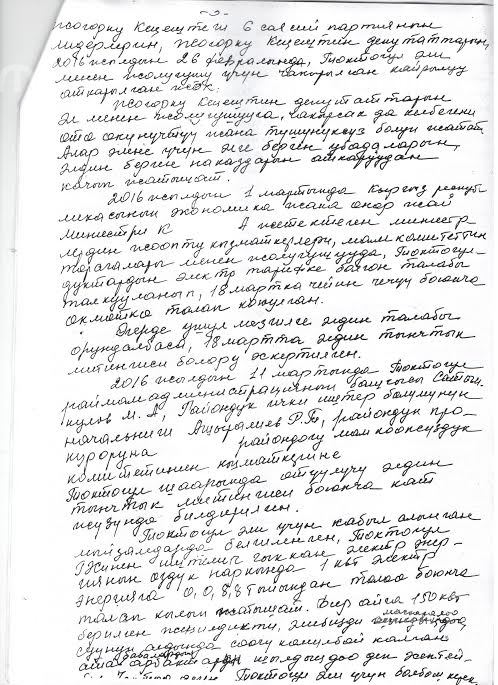 Жогорку Кеңештеги 6 саясий партиянын
лидерлерин, Жогорку Кеңештин депутаттарын,
2016 жылдын 26 февралында, Токтогул эли
менен жолугушуу үчүн чакырылган кайрылуу
аткарылган жок.
Жогорку Кеңештин депутаттарын
эл менен жолугушууга, чакырсак да келбегени
ото окунучтуу жана тушунуксуз болуп жатат.
Алар эмне учун эле берген убадаларын,
элдин берген наказдарын аткаруудан
качып жатышат.
2016 жылдын 1 мартында Кыргыз респуб-
ликасынын экономика жана онор жай
министри К А жетектеген минист
лердин жооптуу кызматкерлери, мам комитеттин
торагалары менен жолугушууда, Токтогул-
дуктардын электр тарифке болгон талабы
талкууланып, 18 мартка чейин чечүү боюнча
окмотко талап коюлган.
Эгерде ушул мезгилге элдин талабы
орундалбаса, 18 мартта элдин тынчтык
митингиси болору эскертилген.
2016 жылдын 11 мартында Токтогул
раймамадминистрациянын башчысы
кулов М. А, Райондук ички иштер болумунун
начальниги Ашыралиев Р.Т, райондун про-
куроруна райондогу мамкоопсуздук
комитетинин кызматкерине
Токтогул шаарында өтүүлүчү элдин
тынчтык митингиси боюнча кат
жузундо билдирилген.
Токтогул эли үчүн кабыл алынган
мыйзамдарда белгиленген, Токтогул
ГЭСинен иштелип чыккан электр энер-
гиянын оздук наркында 1 квт электр
энергияга 0,0,8,8 тыйындан толоо боюнча
талап кылып жатышат. Бир айга 150 квт
берилген женилдикти, элибизди
суунун алдында соогу калган